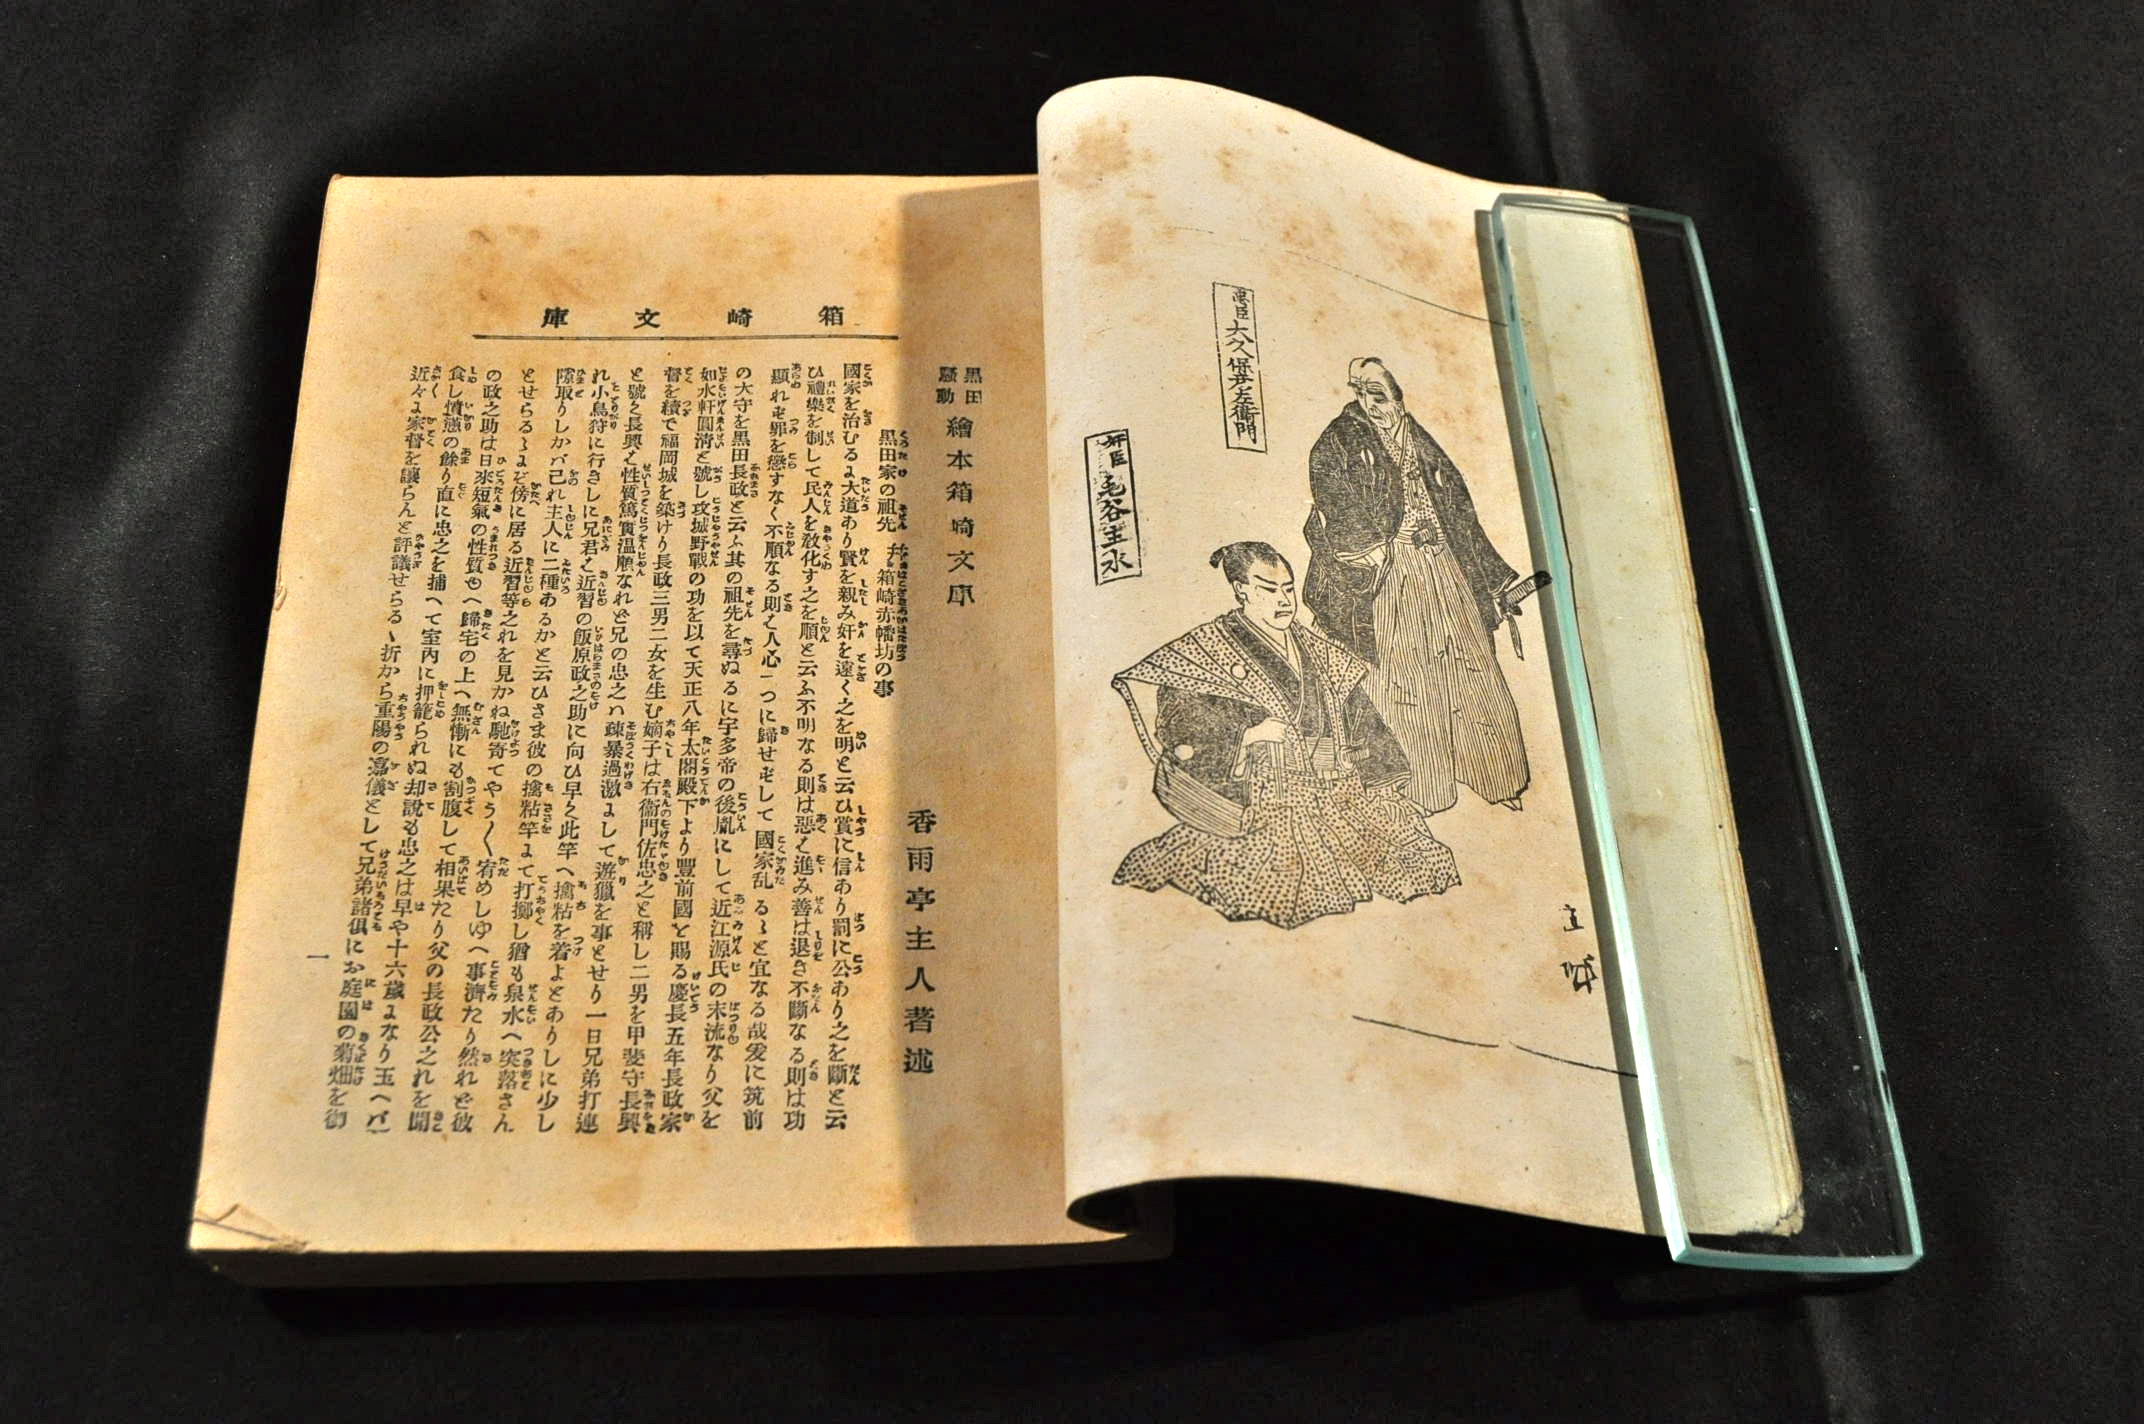 忠臣 大久保彦左衛門
奸臣 毛谷主水
黒田騒動 繪本箱崎文庫
香雨亭主人著述
箱崎文庫
黒田家の祖先并箱崎赤幡坊の事
國家を治むるに大道あり賢を親み奸を遠く之を明と云ひ賞に信あり罰に公あり之を斷と云
ひ禮樂を制して民人を敎化す之を順と云ふ不明なる則は惡を進み善は退き不斷なる則は功
顯れず罪を懲すなく不順なる則を人心一つに歸せずして國家乱るゝと宜なる哉爰に筑前
の大守を黒田長政と云ふ其の祖先を尋ぬるに宇多帝の後胤にして近江源氏の末流なり父を
如水軒圓清と號し攻城野戰の功を以て天正八年太閤殿下より豐前國を賜る慶長五年長政家
督を續で福岡城を築けり長政三男二女を生む嫡子は右衞門佐忠之と稱し二男を甲斐守長興
と號く長興を性質篤實温順なれど兄の忠之ハ疎暴過激にして遊獵を事とせり一日兄弟打連
れ小鳥狩に行きしに兄君を近習の飯原政之助に向ひ早く此竿へ擒粘を着よとありしに少し
隙取りしかバ己れ主人に二種あるかと云ひさま彼の擒粘竿にて打擲し猶も泉水へ突落さん
とせらるゝにぞ傍に居る近習等之れを見かね馳寄てやう〱宥めしゆへ事濟たり然れど彼
の政之助は日來短氣の性質ゆへ歸宅の上へ無慚にも割腹して相果たり父の長政公之れを聞
食し憤懣の餘り直に忠之を捕へて室内に押籠られぬ却說も忠之は早や十六歲になり玉へバ
近々に家督を讓らんと評議せらるゝ折から重陽の嘉儀として兄弟諸俱にお庭園の菊畑を御
一